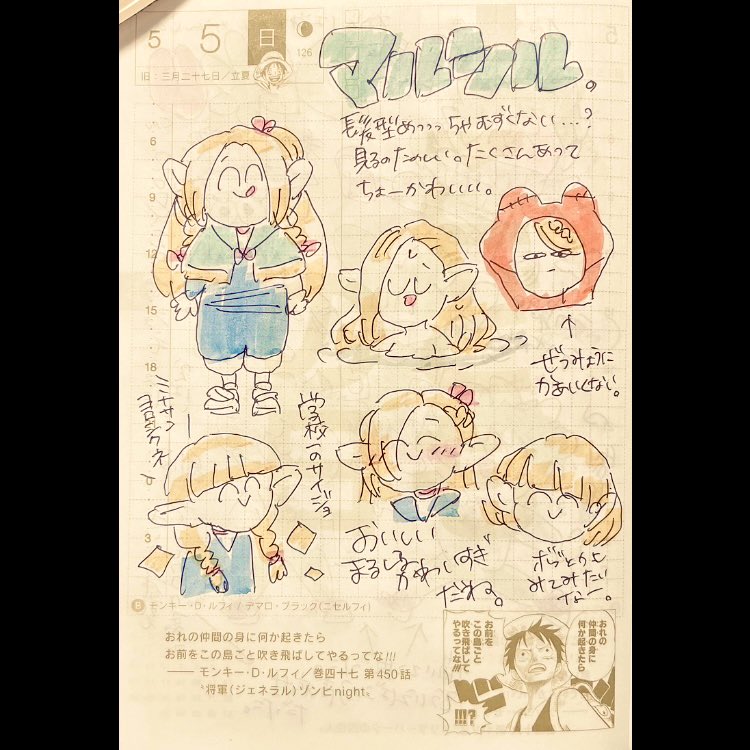 5 5 日
126
旧：三月二十七日／立夏
マルシル。
髪型めっっっちゃむずくない…？
見るのたのしい。たくさんあって
ちょーかわいい。
6
9
12
15
18
3
ぜつみょうに
かわいくない。
ミナサン
ヨロシクネー
学校一のサイジョ
おいしい
まるしるかわいすぎ
だよね。
ボブとかも
みてみたい
なー。
B モンキー・D・ルフィ / デマロ・ブラック(ニセルフィ)
おれの仲間の身に何か起きたら
お前をこの島ごと吹き飛ばしてやるってな!!!
――― モンキー・D・ルフィ／巻四十七 第450話
“将軍(ジェネラル)ゾンビnight”
おれの
仲間の身に
何か起きたら
お前を
この島ごと
吹き飛ばして
やるってな!!!
!!!?